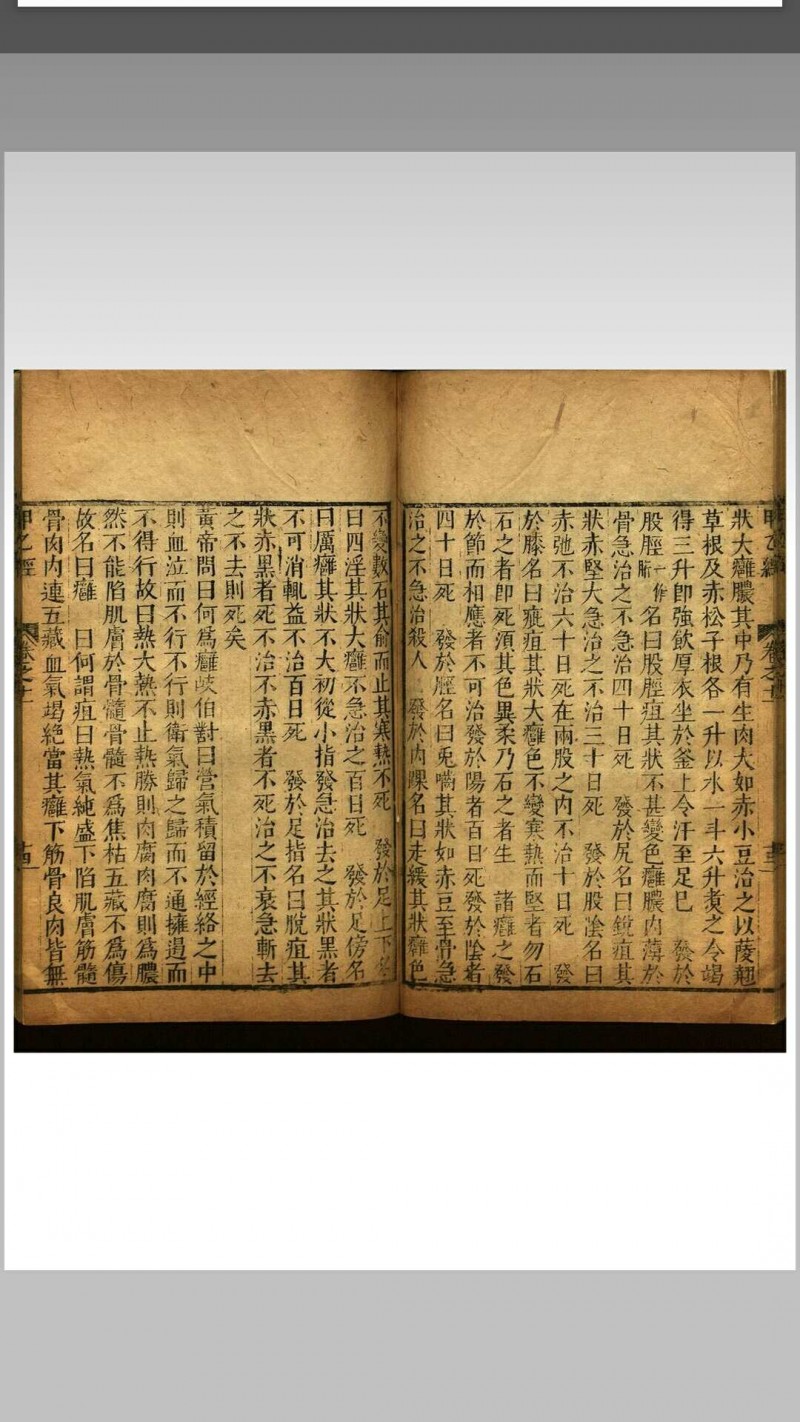 甲乙經 卷之十一
狀大癰膿其中乃有生肉大如赤小豆治之以䔖翹
草根及赤松子根各一升以水一斗六升煮之令竭
得三升即強飲厚衣坐於釜上令汗至足已　發於
股脛一作䯒名曰股脛疽其狀不甚變色癰膿内薄於
骨急治之不急治四十日死　發於尻名曰銳疽其
狀赤堅大急治之不治三十日死　發於股陰名曰
赤弛不治六十日死在兩股之内不治十日死　發
於膝名曰疵疽其狀大癰色不變寒熱而堅者勿石
石之者即死須其色異柔乃石之者生　諸癰之發
於節而相應者不可治發於陽者百日死發於陰者
四十日死　發於脛名曰兎嚙其狀如赤豆至骨急
治之不急治殺人　發於内踝名曰走緩其狀癰色
不變數石其俞而止其寒熱不死　發於足上下名
曰四淫其狀大癰不急治之百日死　發於足傍名
曰厲癰其狀不大初從小指發急治去之其狀黑者
不可消輒益不治百日死　發於足指名曰脫疽其
狀赤黑者死不治不赤黑者不死治之不衰急斬去
之不去則死矣
黃帝問曰何爲癰岐伯對曰營氣積留於經絡之中
則血泣而不行不行則衛氣歸之歸而不通擁遏而
不得行故曰熱大熱不止熱勝則肉腐肉腐則爲膿
然不能陷肌膚於骨髓骨髓不爲焦枯五藏不爲傷
故名曰癰　曰何謂疽曰熱氣純盛下陷肌膚筋髓
骨肉内連五藏血氣竭絕當其癰下筋骨良肉皆無
甲乙經 卷之十一